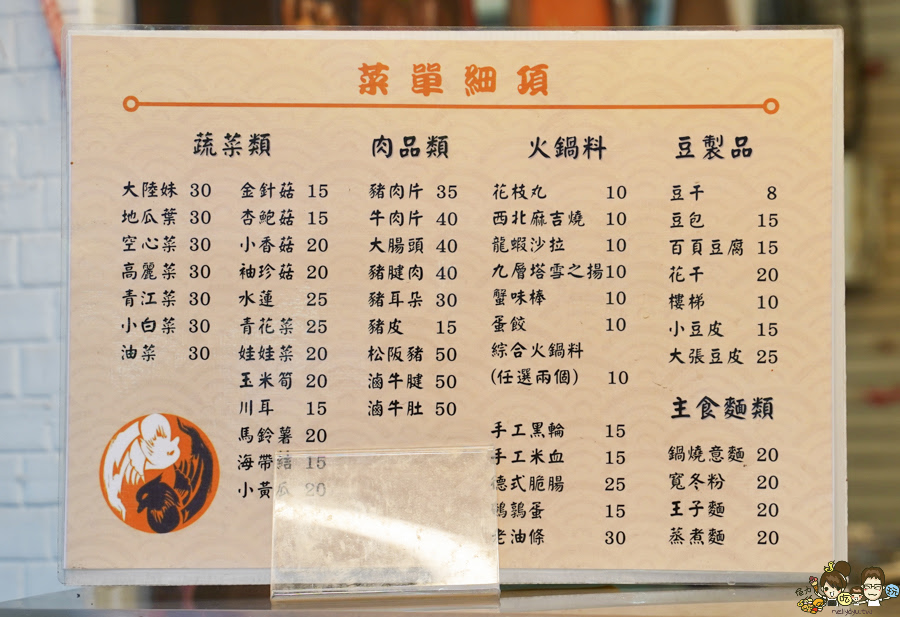 菜單細項
蔬菜類
大陸妹 30
地瓜葉 30
空心菜 30
高麗菜 30
青江菜 30
小白菜 30
油菜 30
金針菇 15
杏鮑菇 15
小香菇 20
袖珍菇 20
水蓮 25
青花菜 25
娃娃菜 20
玉米筍 20
川耳 15
馬鈴薯 20
海帶 15
小黃瓜 20
肉品類
豬肉片 35
牛肉片 40
大腸頭 40
豬腱肉 40
豬耳朵 30
豬皮 15
松阪豬 50
滷牛腱 50
滷牛肚 50
火鍋料
花枝丸 10
西北麻吉燒 10
龍蝦沙拉 10
九層塔雪之揚 10
蟹味棒 10
蛋餃 10
綜合火鍋料
(任選兩個) 10
手工黑輪 15
手工米血 15
德式脆腸 25
鵪鶉蛋 15
老油條 30
豆製品
豆干 8
豆包 15
百頁豆腐 15
花干 20
樓梯 10
小豆皮 15
大張豆皮 25
主食麵類
鍋燒意麵 20
寬冬粉 20
王子麵 20
蒸煮麵 20